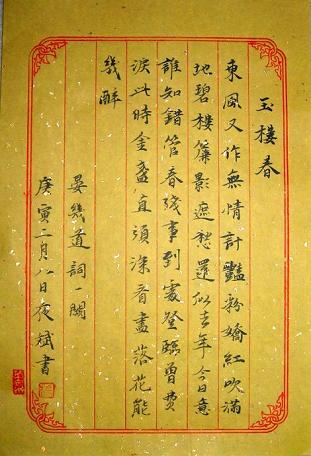 玉樓春
東風又作無情計豔粉嬌紅吹滿
地碧樓簾影遮愁還似去年今日意
誰知錯管春殘事到處登臨曾費
淚此時金盞直須深看盡落花能
幾醉
晏幾道詞一闋
庚寅二月八日夜斌書